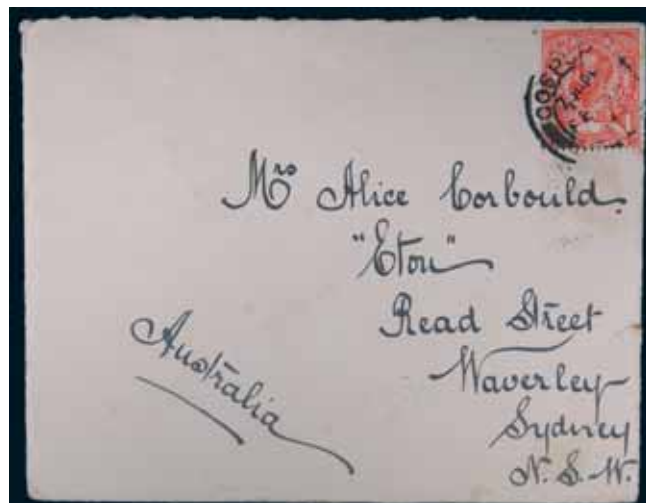 Mrs Alice Corbould.
"Eton"
Read Street
Waverley
Sydney
N.S.W.
Australia